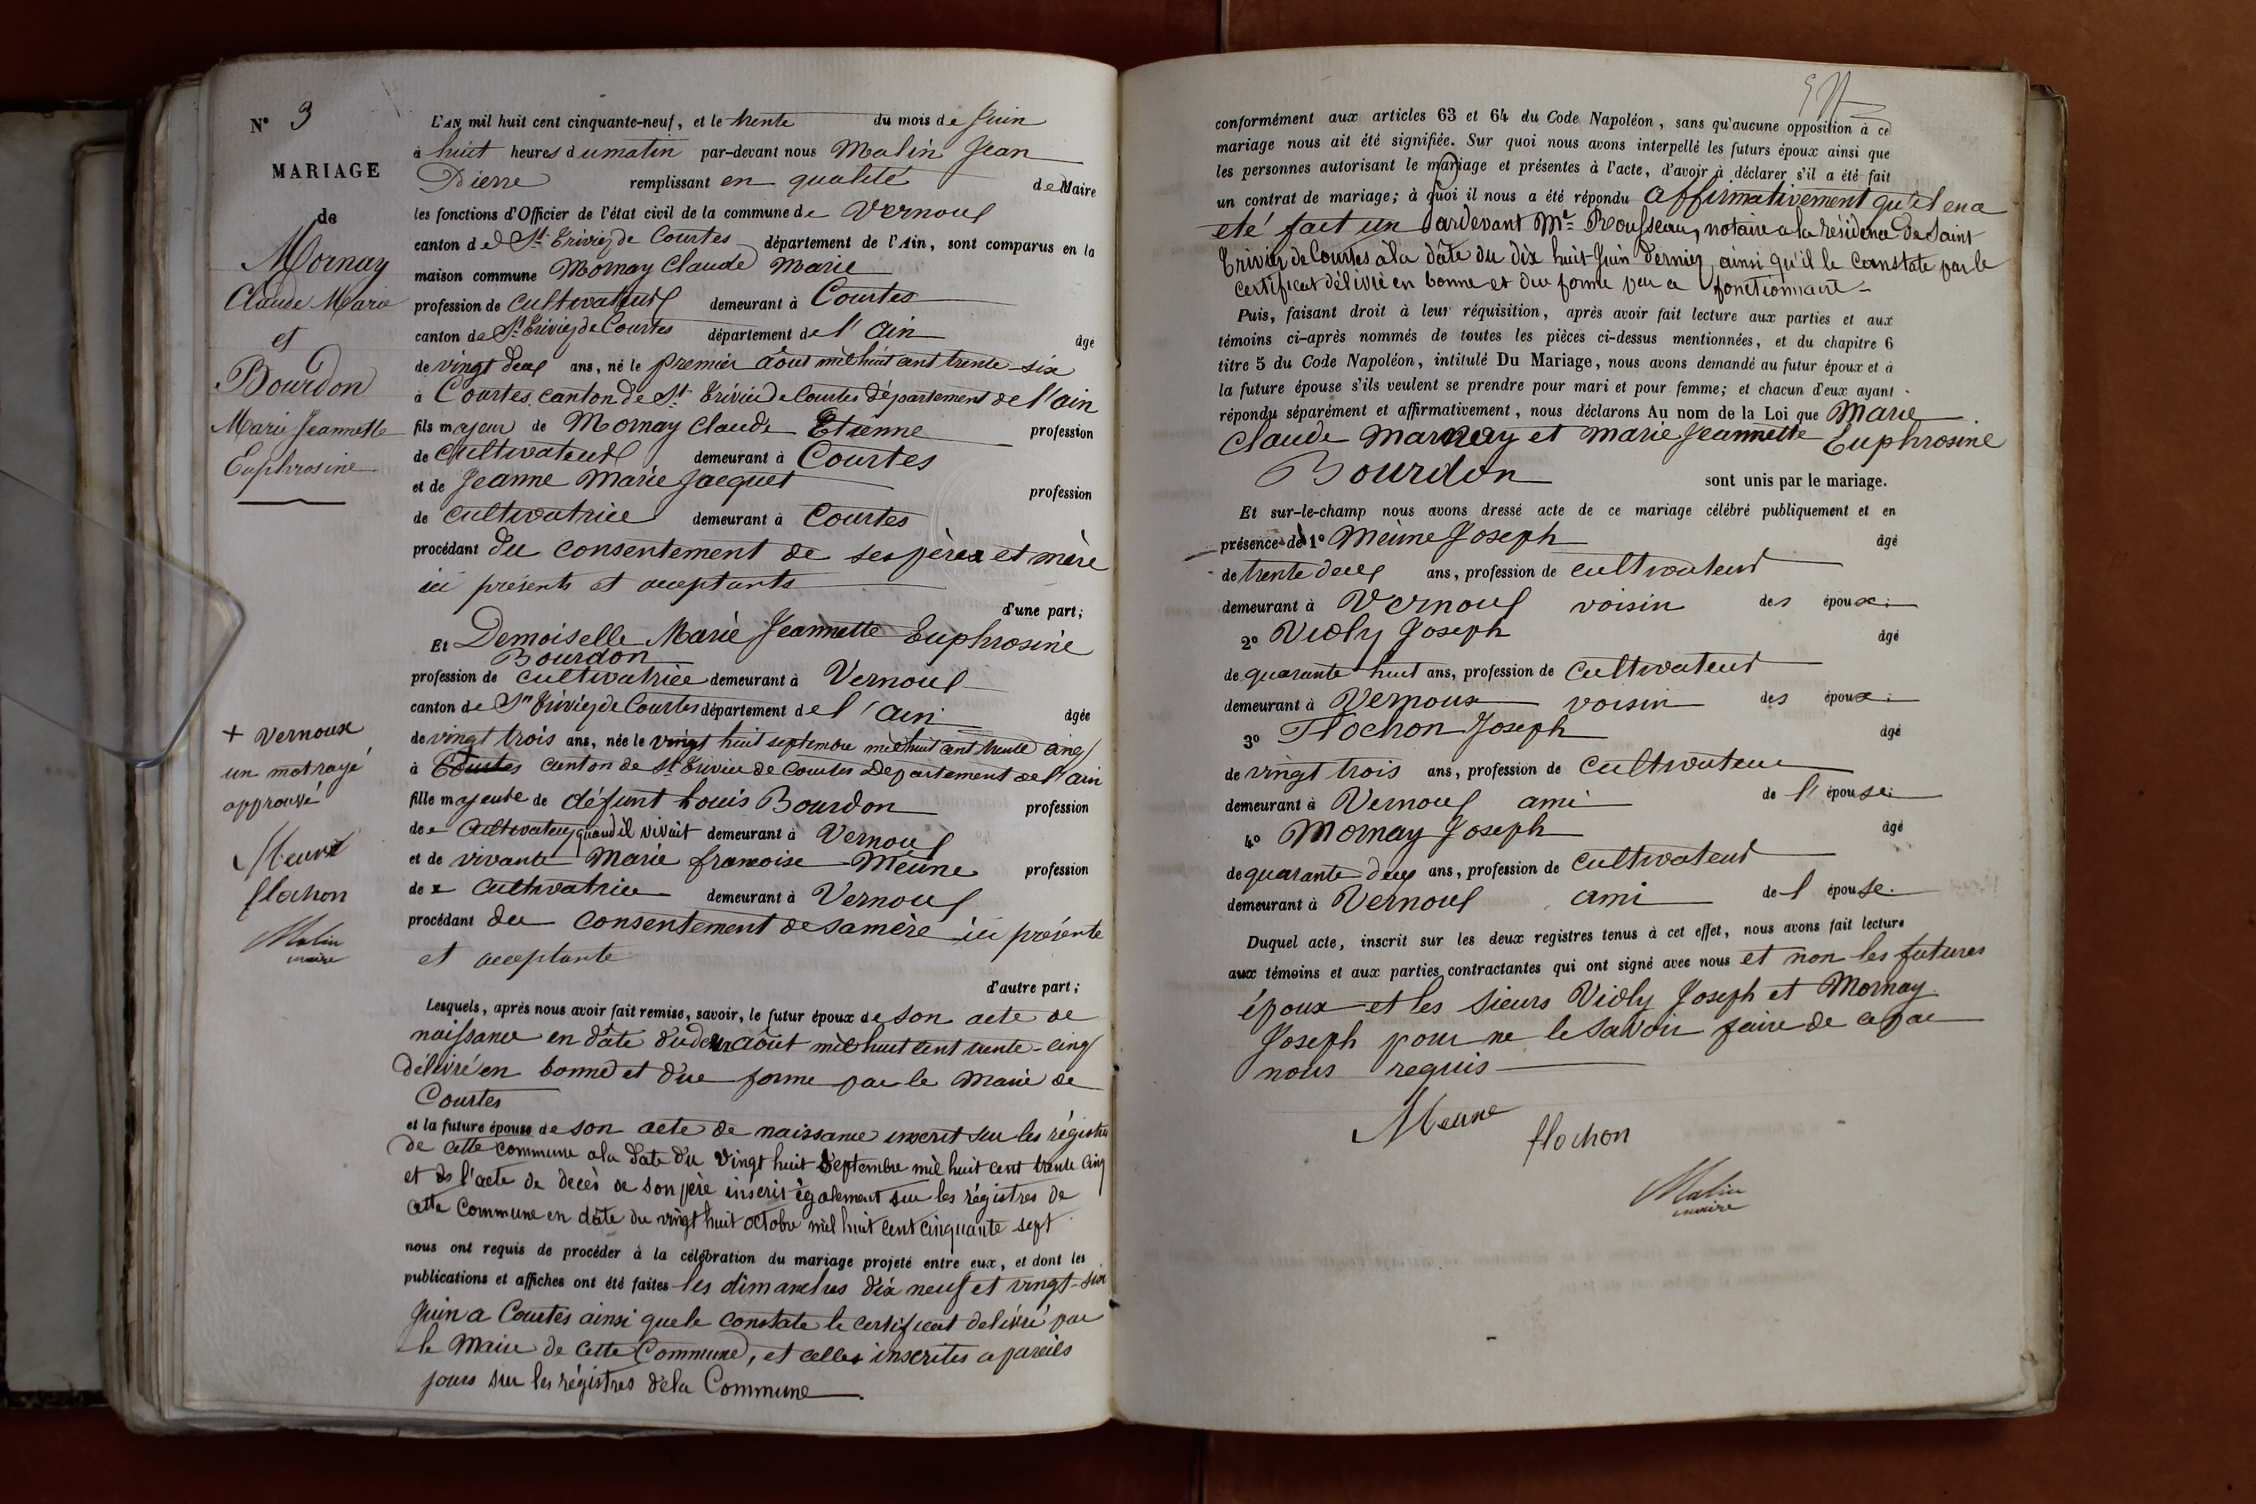 N° 3
MARIAGE
de
Mornay
Claude Marie
et
Bourdon
Marie Jeannette
Euphrosine
+ Vernoux
un mot rayé
approuvé
Meune
flochon
Malin
maire
L'AN mil huit cent cinquante-neuf, et le trente du mois de Juin
à huit heures du matin par-devant nous Malin Jean
Pierre remplissant en qualité de Maire
les fonctions d'Officier de l'état civil de la commune de Vernoux
canton de St Triviez de Courtes département de l'Ain, sont comparus en la
maison commune Mornay Claude Marie
profession de cultivateur demeurant à Courtes
canton de St Triviez de Courtes département de l'ain âgé
de vingt deux ans, né le premier août mil huit cent trente-six
à Courtes canton de St Trivier de Courtes département de l'ain
fils majeur de Mornay Claude Etienne profession
de cultivateur demeurant à Courtes
et de Jeanne Marie Jacquet profession
de cultivatrice demeurant à Courtes
procédant du consentement de ses père et mère
ici présents et acceptants
d'une part;
Et Demoiselle Marie Jeannette Euphrosine
Bourdon
profession de cultivatrice demeurant à Vernoux
canton de St Triviez de Courtes département de l'ain âgée
de vingt trois ans, née le vingt huit septembre mil huit cent trente cinq
à Courtes canton de St Trivier de Courtes Département de l'ain
fille majeure de défunt Louis Bourdon profession
de cultivateur quand il vivait demeurant à Vernoux
et de vivante Marie francoise Meune profession
de cultivatrice demeurant à Vernoux
procédant du consentement de sa mère ici présente
et acceptante
d'autre part;
Lesquels, après nous avoir fait remise, savoir, le futur époux de son acte de
naissance en date du août mil huit cent trente-cinq
délivré en bonne et due forme par le Maire de
Courtes
et la future épouse de son acte de naissance inscrit sur les régistres
de cette commune a la date du vingt huit Septembre mil huit cent trente cinq
et de l'acte de decès de son père inscrit également sur les régistres de
cette Commune en date du vingt huit octobre mil huit cent cinquante sept
nous ont requis de procéder à la célébration du mariage projeté entre eux, et dont les
publications et affiches ont été faites les dimanches dix neuf et vingt-six
Juin a Courtes ainsi que le constate le certificat delivré par
le Maire de cette Commune, et celles inscrites a pareils
jours sur les régistres de la Commune
conformément aux articles 63 et 64 du Code Napoléon, sans qu'aucune opposition à ce
mariage nous ait été signifiée. Sur quoi nous avons interpellé les futurs époux ainsi que
les personnes autorisant le mariage et présentes à l'acte, d'avoir à déclarer s'il a été fait
un contrat de mariage; à quoi il nous a été répondu affirmativement qu'il en a
eté fait un Pardevant Me Rousseau, notaire a la résidence de Saint
Trivier de Courtes à la date du dix huit Juin dernier, ainsi qu'il le constate par le
certificat délivré en bonne et due forme par ce fonctionnaire
Puis, faisant droit à leur réquisition, après avoir fait lecture aux parties et aux
témoins ci-après nommés de toutes les pièces ci-dessus mentionnées, et du chapitre 6
titre 5 du Code Napoléon, intitulé Du Mariage, nous avons demandé au futur époux et à
la future épouse s'ils veulent se prendre pour mari et pour femme; et chacun d'eux ayant
répondu séparément et affirmativement, nous déclarons Au nom de la Loi que Marie
Claude Mornay et Marie Jeannette Euphrosine
Bourdon sont unis par le mariage.
Et sur-le-champ nous avons dressé acte de ce mariage célébré publiquement et en
présence de 1° Meune Joseph âgé
de trente deux ans, profession de cultivateur
demeurant à Vernoux voisin des époux.
2° Viöly Joseph âgé
de quarante huit ans, profession de cultivateur
demeurant à Vernoux voisin des époux.
3° Flochon Joseph âgé
de vingt trois ans, profession de cultivateur
demeurant à Vernoux ami de l'épouse.
4° Mornay Joseph âgé
de quarante deux ans, profession de cultivateur
demeurant à Vernoux ami de l'épouse.
Duquel acte, inscrit sur les deux registres tenus à cet effet, nous avons fait lecture
aux témoins et aux parties contractantes qui ont signé avec nous et non les futures
époux et les sieurs Viöly Joseph et Mornay
Joseph pour ne le savoir faire de ce par
nous requis
Meune
flochon
Malin
maire